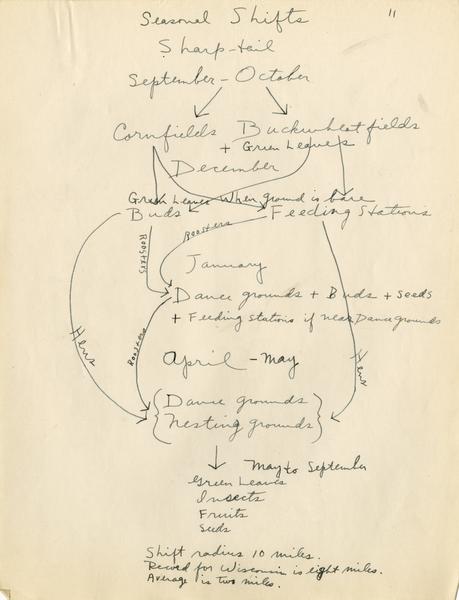 11
Seasonal Shifts
Sharp-tail
September - October
Cornfields Buckwheat fields
+ Green Leaves
December
Green Leaves When ground is bare
Buds Feeding Stations
Roosters
Roosters
January
Dance grounds + Buds + seeds
+ Feeding stations if near Dance grounds
Hens
Roosters
Hens
April - May
Dance grounds
Nesting grounds
May to September
Green Leaves
Insects
Fruits
Seeds
Shift radius 10 miles.
Record for Wisconsin is eight miles.
Average is two miles.